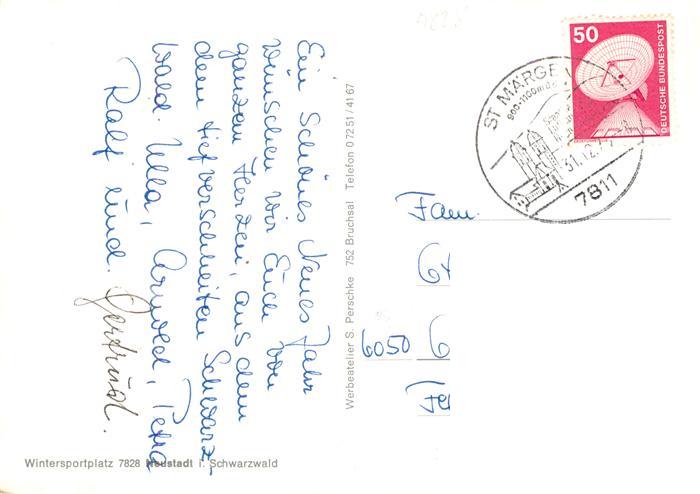 Ein Schönes Neues Jahr
wünschen wir Euch von
ganzen Herzen, aus dem
dem tief verschneiten Schwarz-
wald. Ulla, Arnold, Petra
Ralf und. Gertrud.
Wintersportplatz 7828 Neustadt i. Schwarzwald
Werbeatelier S. Perschke 752 Bruchsal Telefon 07251/4167
50
DEUTSCHE BUNDESPOST
ST MÄRGEN
900-1100m
31.12.
7811
Fam.
6050